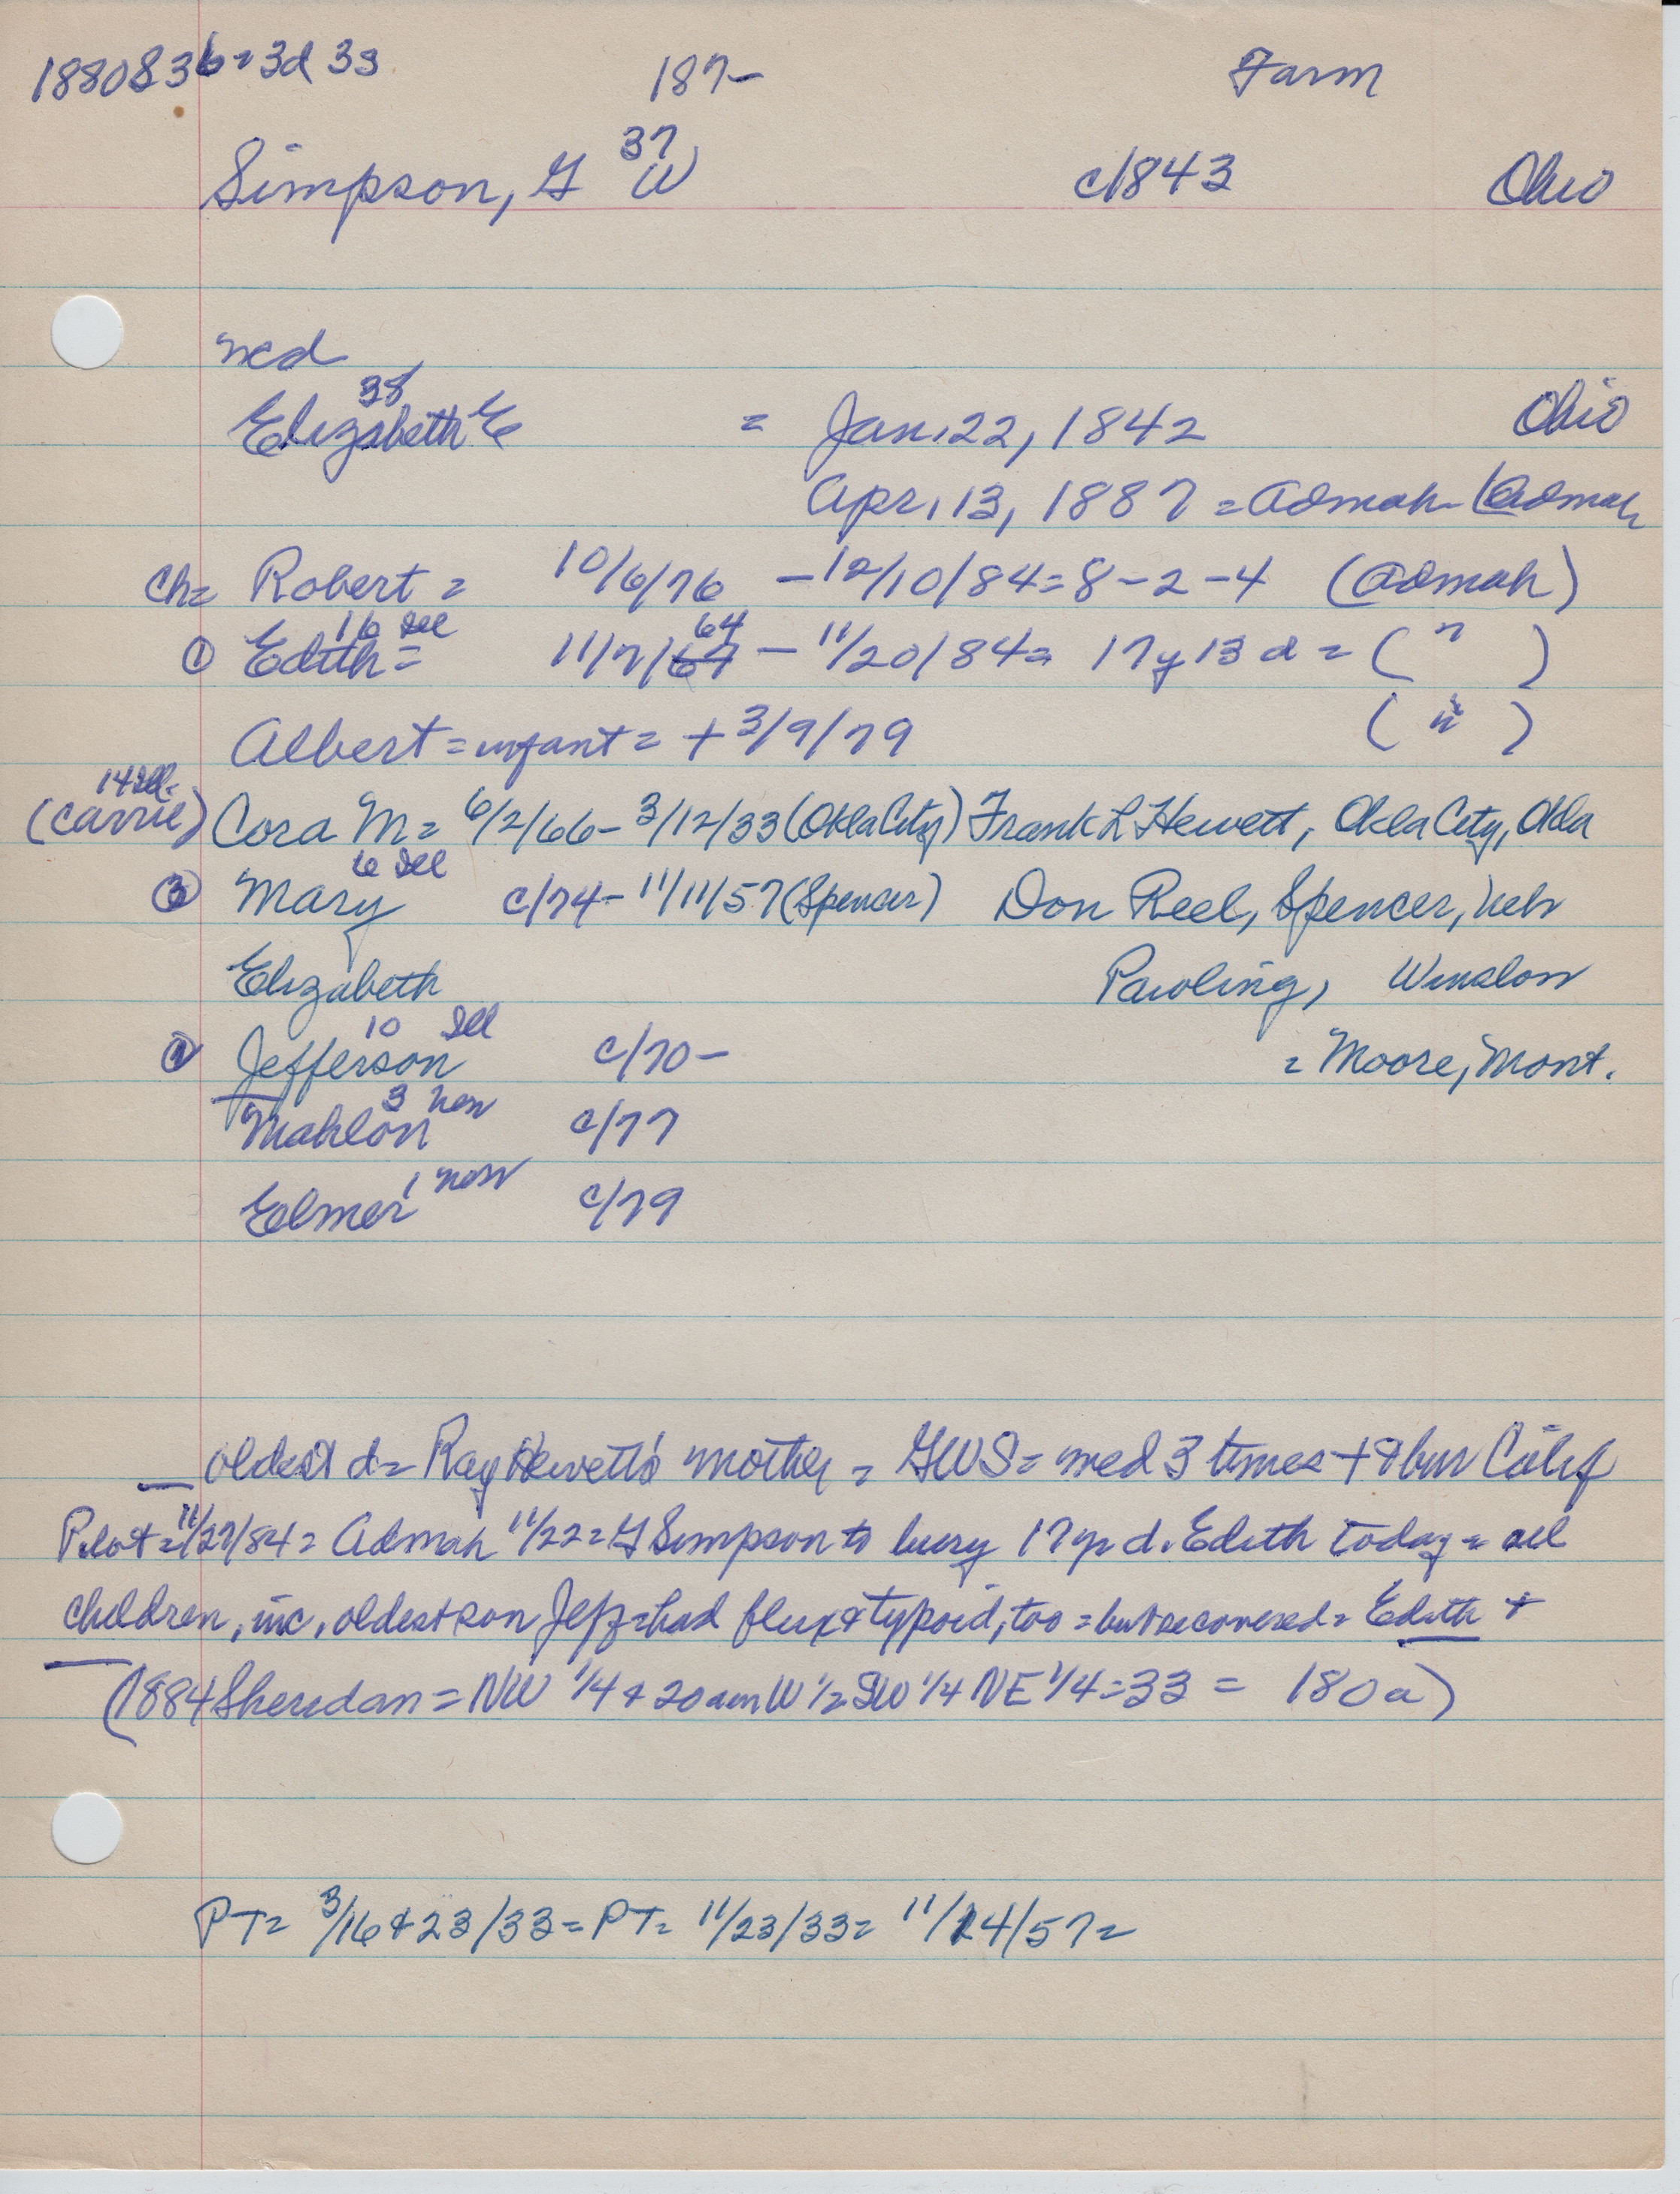 1880S36=3d 3s 187- Farm
37
Simpson, G W c/843 Ohio
med
38
Elizabeth E = Jan. 22, 1842 Ohio
Apr. 13, 1887 = Admah (Admah
Ch= Robert = 10/6/76 - 12/10/84=8-2-4 (Admah)
16 Ill 64
① Edith = 11/7/67 - 11/20/84= 17y 13 d = ( " )
Albert = infant = + 3/9/79 ( " )
14 Ill.
(Carrie) Cora M= 6/2/66- 3/12/33 (Okla City) Frank L Hewett, Okla City, Okla
6 Ill
③ Mary c/74- 11/11/57 (Spencer) Don Reel, Spencer, Neb
Elizabeth Pawling, Winslow
10 Ill
② Jefferson c/70- = Moore, Mont.
3 Neb
Mahlon c/77
1 Neb
Elmer c/79
oldest d= Ray Hewett's mother = GWS= med 3 times + & bur Calif
Pilot=11/27/84= Admah 11/22= G Simpson to bury 17 yr d. Edith today = all
children, inc. oldest son Jeff=had flux & typoid, too = but recovered= Edith +
(1884 Sheridan = NW 1/4 & 20a in W 1/2 SW 1/4 NE 1/4=33 = 180a)
PT= 3/16 & 23/33= PT= 11/23/33= 11/14/57=